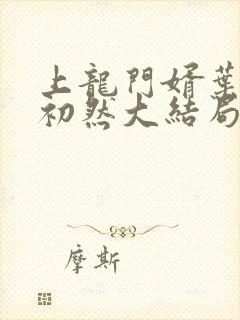 上龍門婿葉
初然大結局
摩斯